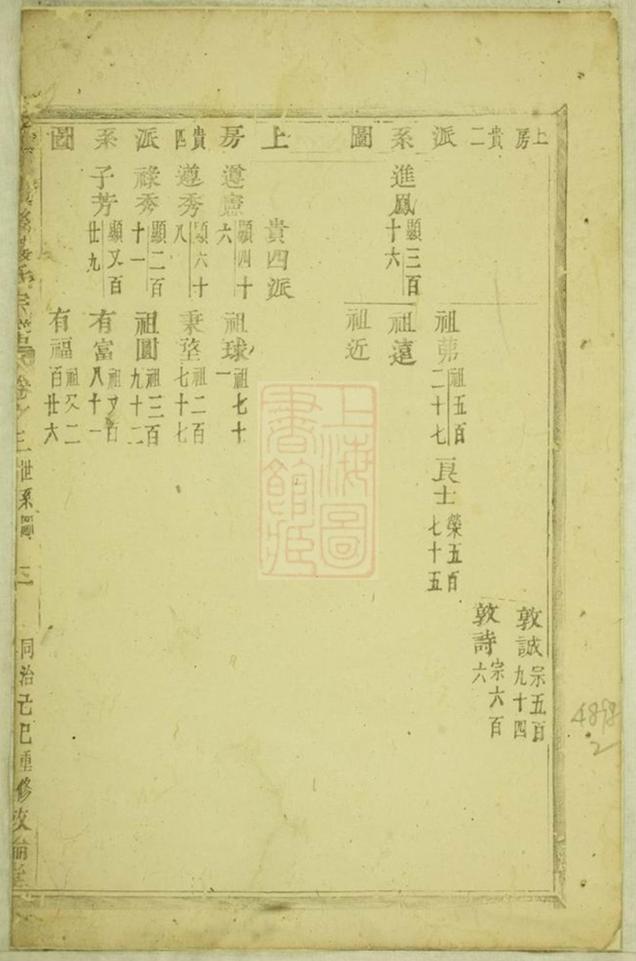 上房貴二派系圖
敦誠宗五百九十四
敦詩宗六百六
祖茀祖五百二十七
良士榮五百七十五
進鳳顯三百十六
祖遠
祖近
上房貴四派系圖
貴四派
遵憲顯四十六
祖球祖七十一
遵秀顯六十八
秉瑩祖二百七十七
祿秀顯二百十一
祖圓祖三百九十二
子芳顯又百廿九
有富祖又百八十一
有福祖又二百廿六
氏宗譜卷之三
世系圖
三
同治己巳重修
上海圖書館藏
4898
2